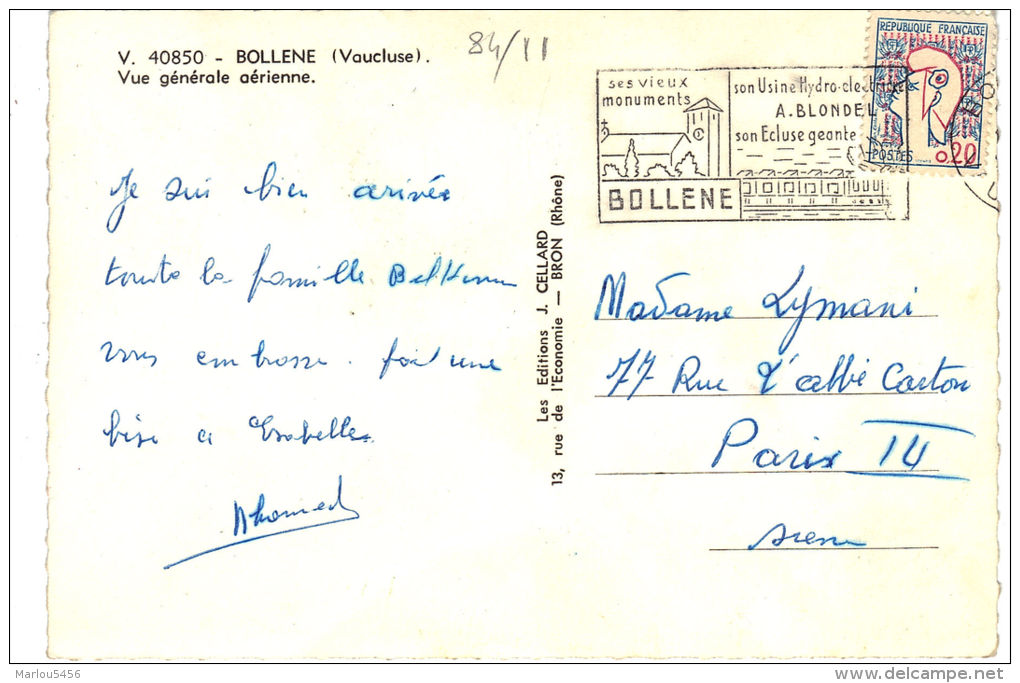 V. 40850 - BOLLENE (Vaucluse).
Vue générale aérienne.
84/11
Je sui bien arivée
toute la famille
vous embrasse. fait une
bise a Esabelle
Mhamed
Les Editions J. CELLARD
13, rue de l'Economie — BRON (Rhône)
ses vieux
monuments
BOLLENE
son Usine Hydro-électrique
A. BLONDEL
son Ecluse geante
REPUBLIQUE FRANÇAISE
POSTES
0,20
Madame Lymani
77 Rue L'abbé Carton
Paris 14
Marlou5456
delcampe.net